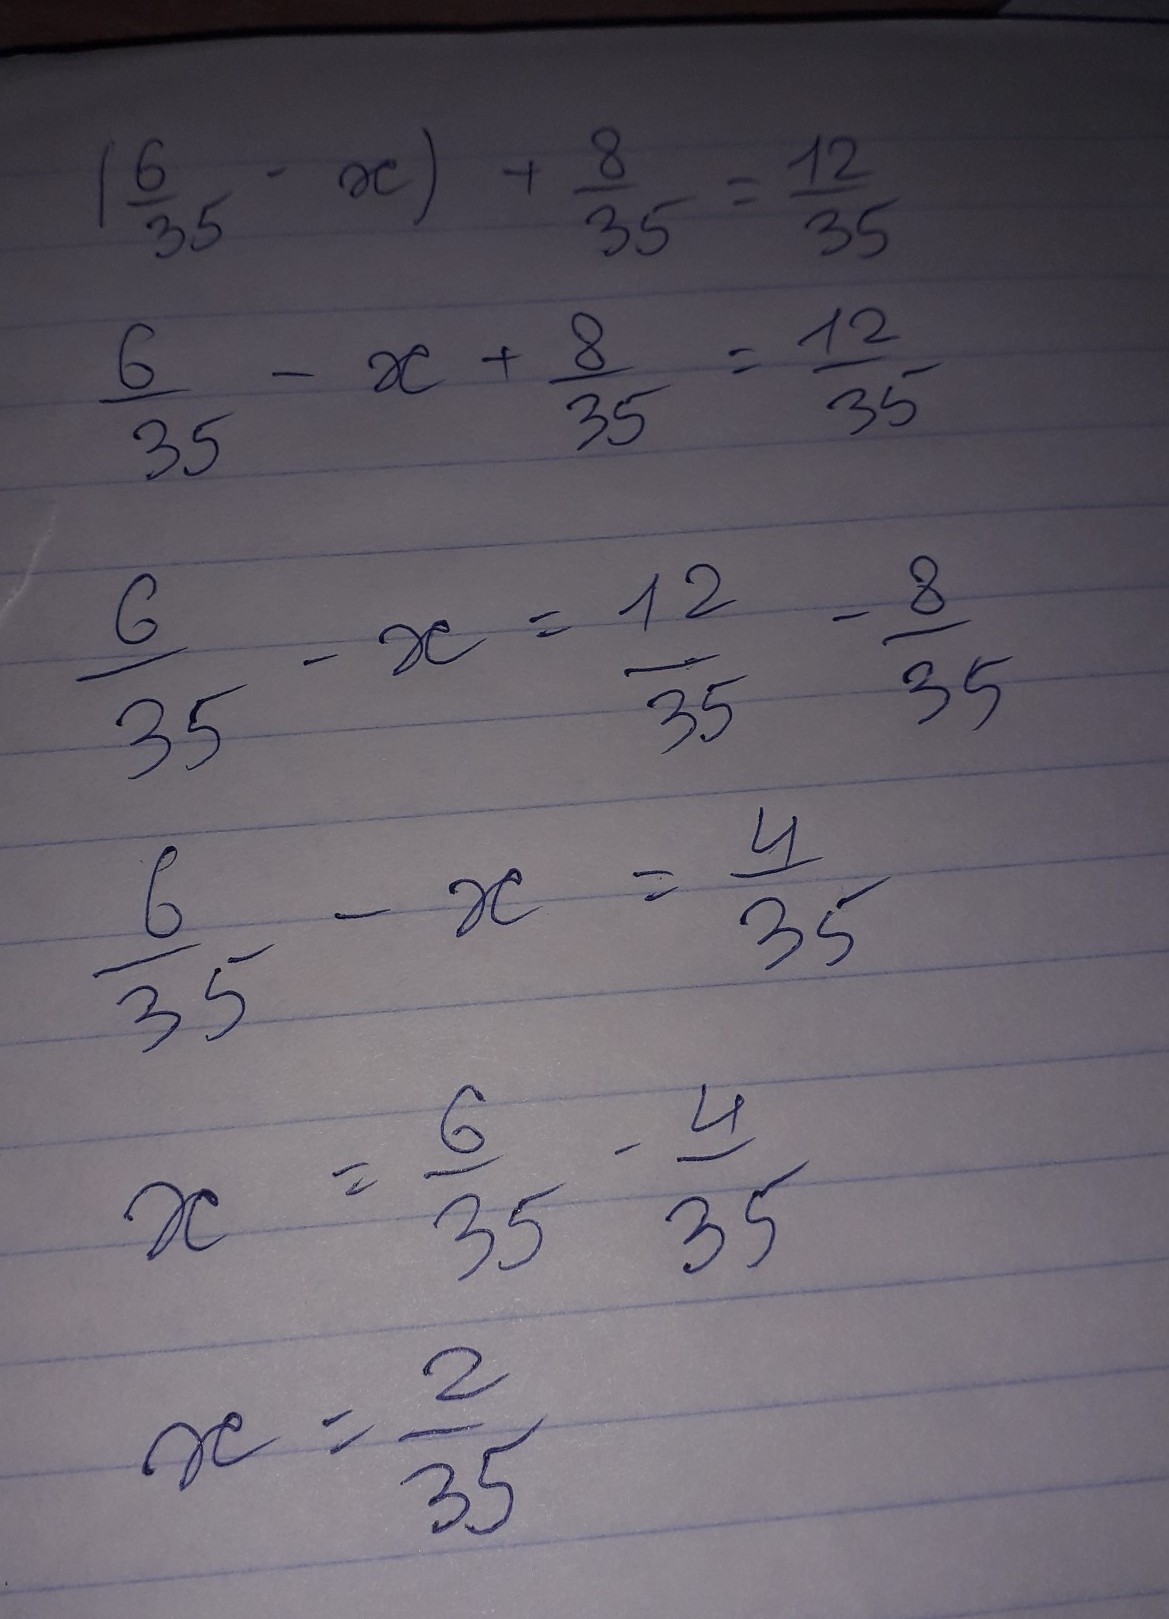 (6/35 - x) + 8/35 = 12/35
6/35 - x + 8/35 = 12/35
6/35 - x = 12/35 - 8/35
6/35 - x = 4/35
x = 6/35 - 4/35
x = 2/35